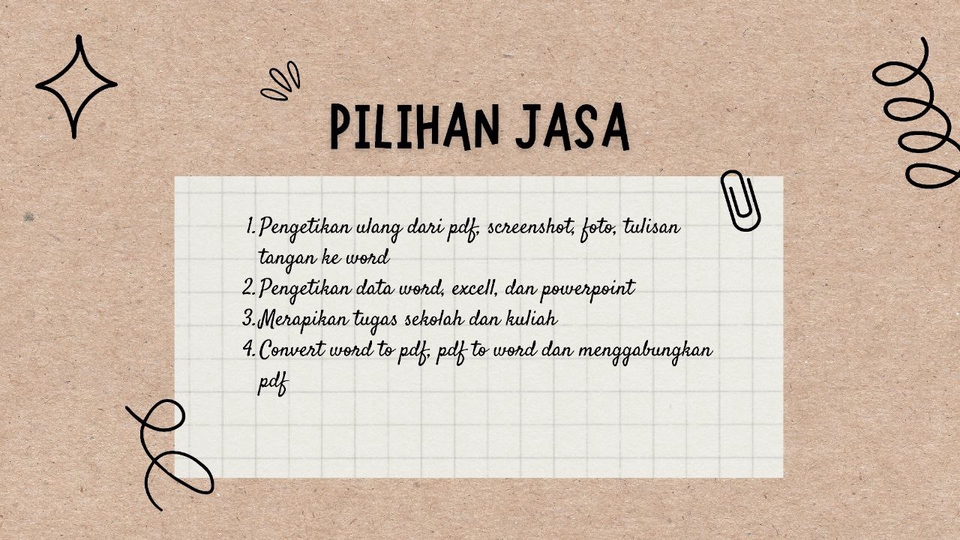 PILIHAN JASA
1. Pengetikan ulang dari pdf, screenshot, foto, tulisan
tangan ke word
2. Pengetikan data word, excell, dan powerpoint
3. Merapikan tugas sekolah dan kuliah
4. Convert word to pdf, pdf to word dan menggabungkan
pdf